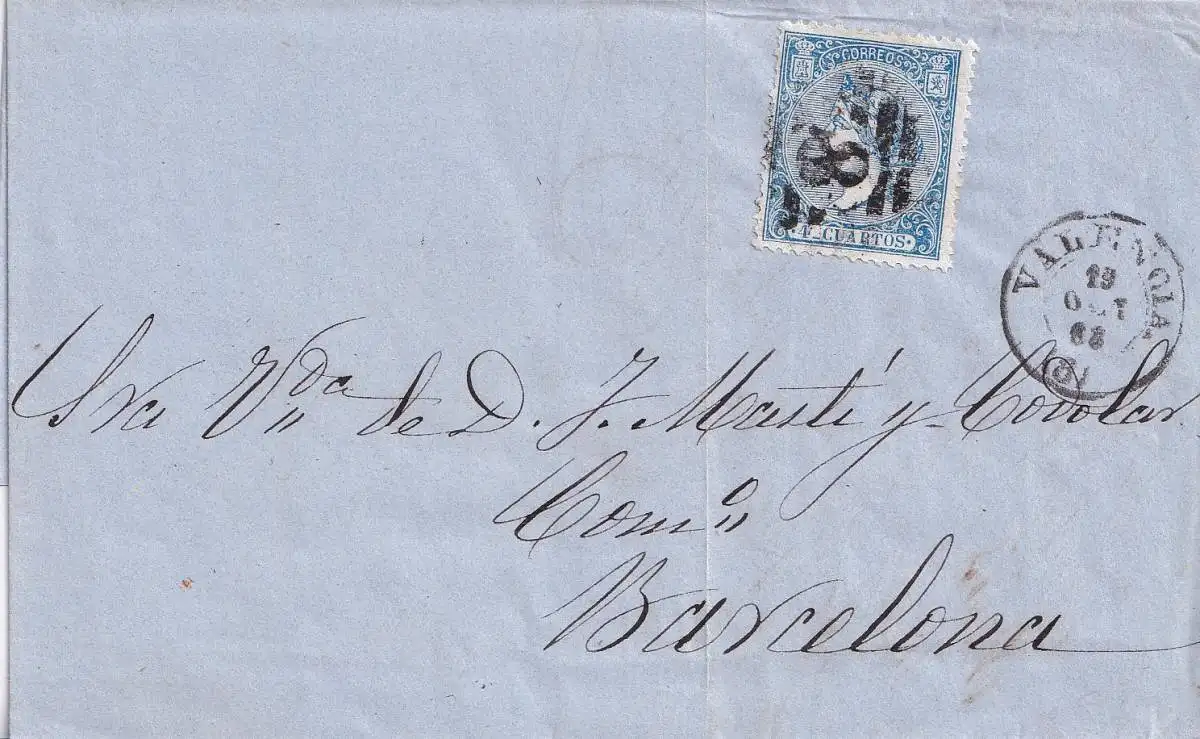 CORREOS
8
4 CUARTOS
VALENCIA
19
OCT
66
Sra Vda de D. J. Martí y Codolar
Como
Barcelona